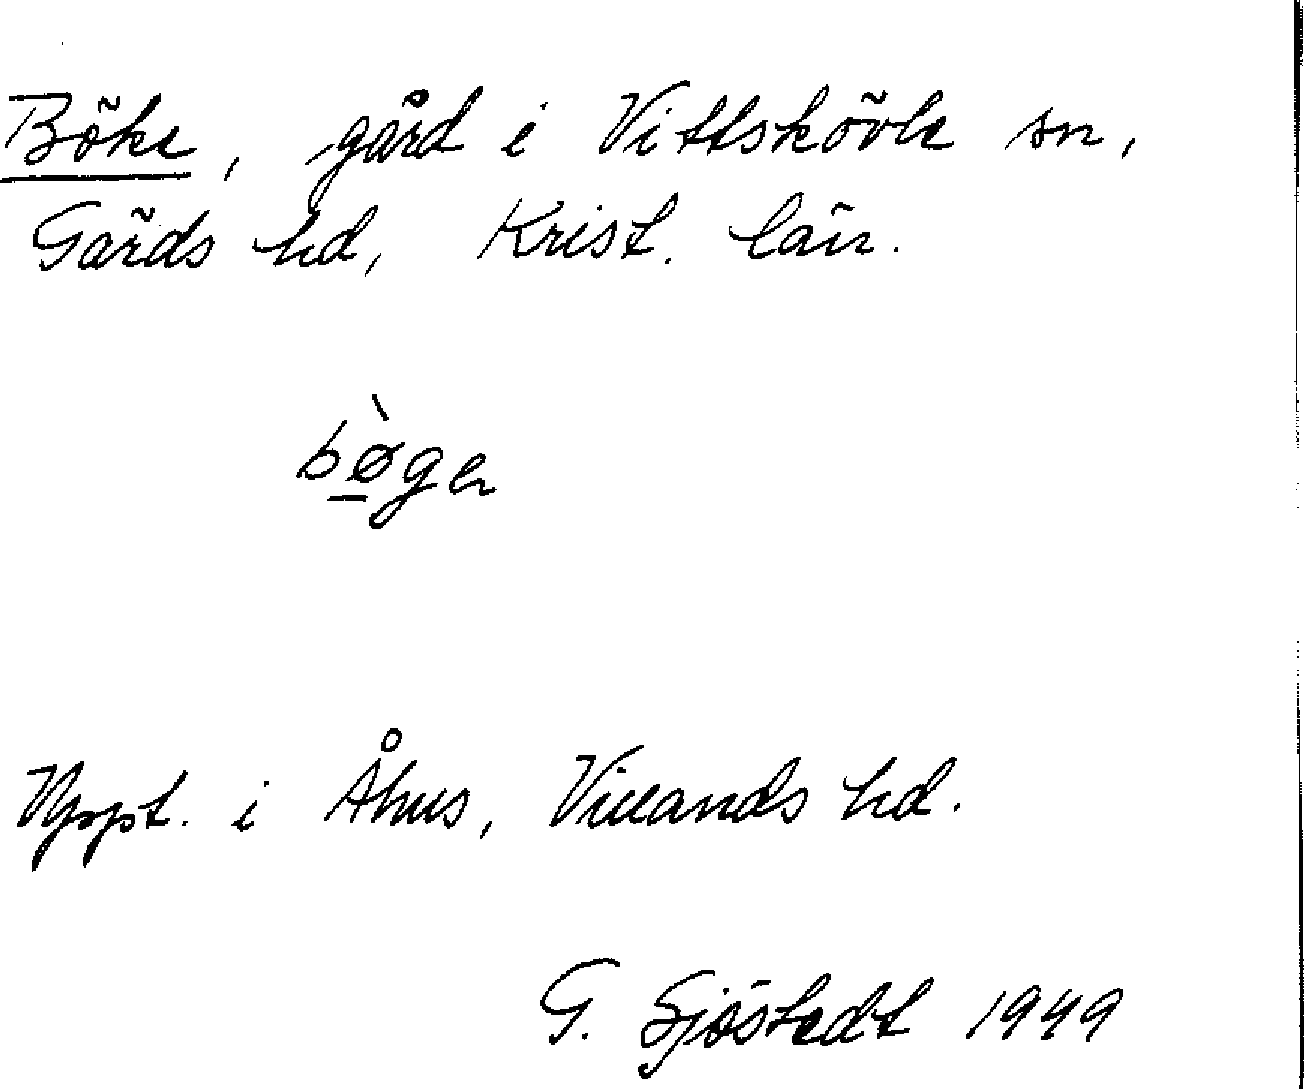 Böke, gård i Vittskövle sn,
Gärds hd, Krist. län.
bø̲̀gen
Uppt. i Åhus, Villands hd.
G. Sjöstedt 1949